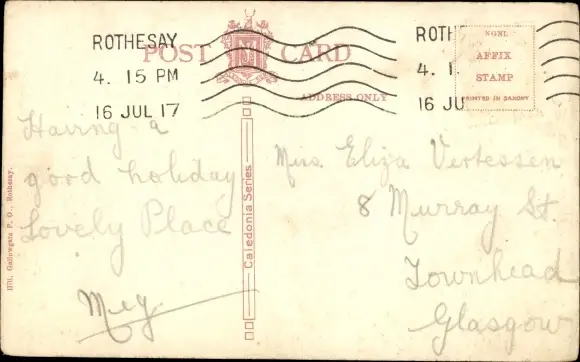 ROTHESAY
4. 15 PM
16 JUL 17
POST CARD
ADDRESS ONLY
ROTH
4. 1
16 JU
AFFIX
STAMP
PRINTED IN SAXONY
Having a
good holiday
Lovely Place
Meg.
Caledonia Series
Gallowgate P. O., Rothesay.
Miss. Eliza Vertessen
8 Murray St.
Townhead
Glasgow